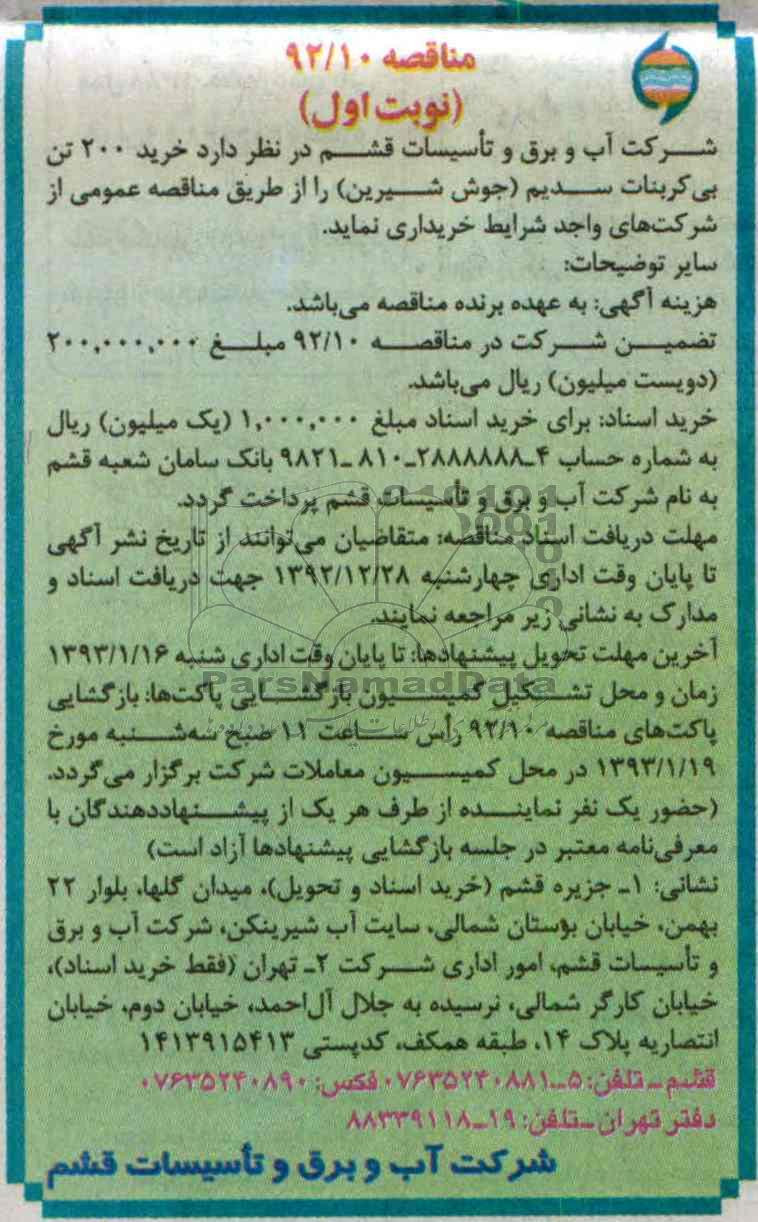 مناقصه ۹۲/۱۰
(نوبت اول)
شرکت آب و برق و تأسیسات قشم در نظر دارد خرید ۲۰۰ تن
بی‌کربنات سدیم (جوش شیرین) را از طریق مناقصه عمومی از
شرکت‌های واجد شرایط خریداری نماید.
سایر توضیحات:
هزینه آگهی: به عهده برنده مناقصه می‌باشد.
تضمین شرکت در مناقصه ۹۲/۱۰ مبلغ ۲۰۰,۰۰۰,۰۰۰
(دویست میلیون) ریال می‌باشد.
خرید اسناد: برای خرید اسناد مبلغ ۱,۰۰۰,۰۰۰ (یک میلیون) ریال
به شماره حساب ۴-۲۸۸۸۸۸۸-۸۱۰-۹۸۲۱ بانک سامان شعبه قشم
به نام شرکت آب و برق و تأسیسات قشم پرداخت گردد.
مهلت دریافت اسناد مناقصه: متقاضیان می‌توانند از تاریخ نشر آگهی
تا پایان وقت اداری چهارشنبه ۱۳۹۲/۱۲/۲۸ جهت دریافت اسناد و
مدارک به نشانی زیر مراجعه نمایند.
آخرین مهلت تحویل پیشنهادها: تا پایان وقت اداری شنبه ۱۳۹۳/۱/۱۶
ParsNamadData
زمان و محل تشکیل کمیسیون بازگشایی پاکت‌ها: بازگشایی
پاکت‌های مناقصه ۹۲/۱۰ رأس ساعت ۱۱ صبح سه‌شنبه مورخ
۱۳۹۳/۱/۱۹ در محل کمیسیون معاملات شرکت برگزار می‌گردد.
(حضور یک نفر نماینده از طرف هر یک از پیشنهاددهندگان با
معرفی‌نامه معتبر در جلسه بازگشایی پیشنهادها آزاد است)
نشانی: ۱ـ جزیره قشم (خرید اسناد و تحویل)، میدان گلها، بلوار ۲۲
بهمن، خیابان بوستان شمالی، سایت آب شیرینکن، شرکت آب و برق
و تأسیسات قشم، امور اداری شرکت ۲ـ تهران (فقط خرید اسناد)،
خیابان کارگر شمالی، نرسیده به جلال آل‌احمد، خیابان دوم، خیابان
انتصاریه پلاک ۱۴، طبقه همکف، کدپستی ۱۴۱۳۹۱۵۴۱۳
قشم ـ تلفن: ۵ـ۰۷۶۳۵۲۴۰۸۸۱ فکس: ۰۷۶۳۵۲۴۰۸۹۰
دفتر تهران ـ تلفن: ۱۹ـ۸۸۳۳۹۱۱۸
شرکت آب و برق و تأسیسات قشم